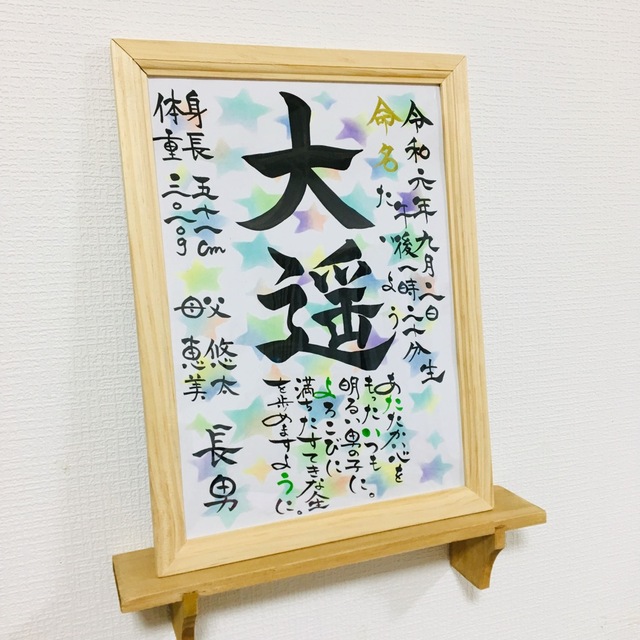 令和六年九月八日
午後一時二十分生
命名
たいよう
大遥
あたたかい心を
もったいつも
明るい男の子に。
よろこびに
満ちたすてきな人生
を歩めますように。
身長 五十一cm
体重 三〇八〇g
父 悠太
母 恵美
長男